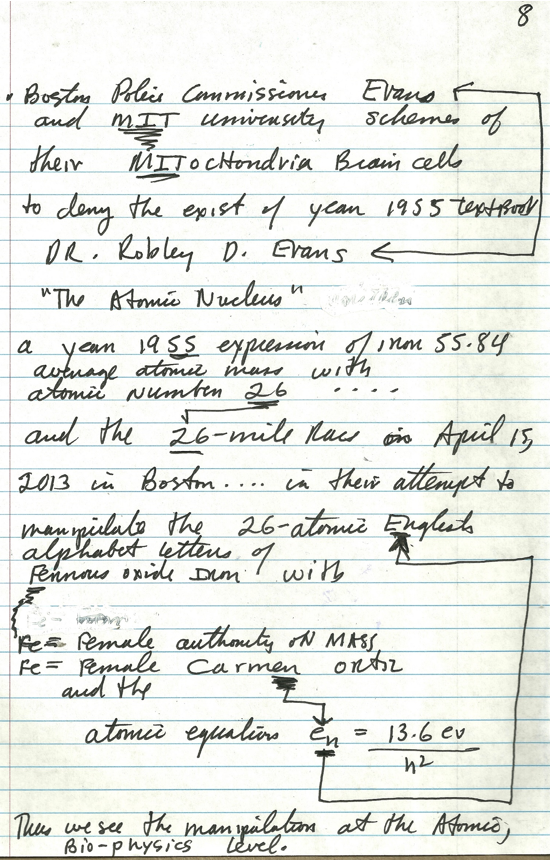 8
. Boston Police Commissioner Evans
and MIT university schemes of
their MITochondria Brain cells
to deny the exist of year 1955 textBook
DR. Robley D. Evans
"The Atomic Nucleus"
a year 1955 expression of iron 55.84
average atomic mass with
atomic number 26 ....
and the 26-mile Race in April 15,
2013 in Boston.... in their attempt to
manipulate the 26-atomic English
alphabet letters of
Ferrous oxide Iron with
Fe= Female authority ON MASS
Fe= Female Carmen ortiz
and the
atomic equation en = 13.6 ev
n²
Thus we see the manipulation at the Atomic,
Bio-physics level.